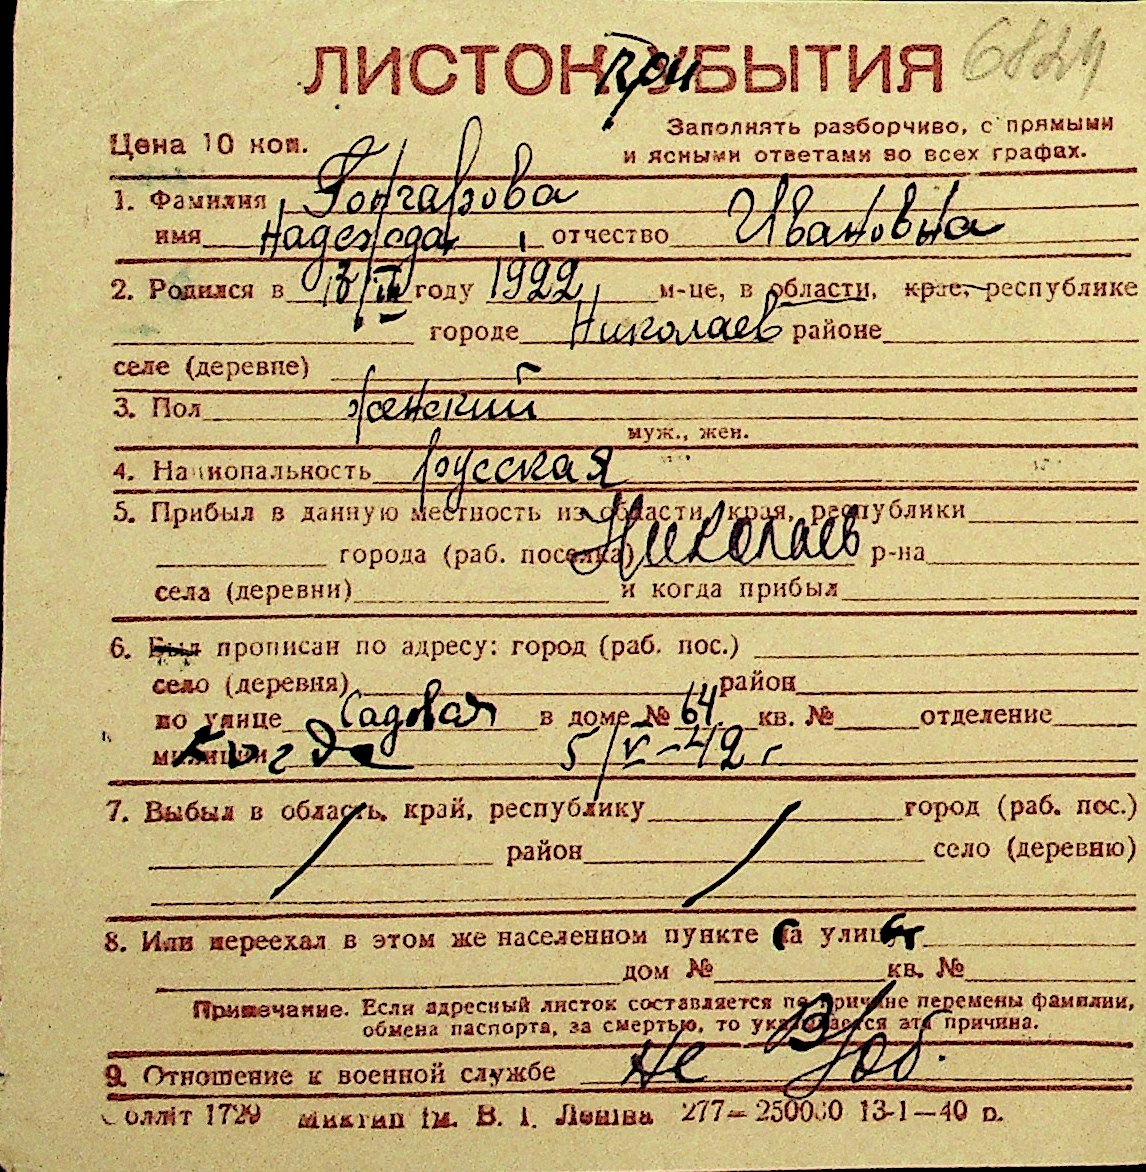 ЛИСТОК УБЫТИЯ 6824
при
Цена 10 коп.
Заполнять разборчиво, с прямыми
и ясными ответами во всех графах.
1. Фамилия Гончарова
имя Надежда отчество Ивановна
2. Родился в 13/III году 1922 м-це, в области, крае, республике
городе Николаев районе
селе (деревне)
3. Пол женский
муж., жен.
4. Национальность русская
5. Прибыл в данную местность из области, края, республики
города (раб. поселка) Николаев р-на
села (деревни) и когда прибыл
6. Был прописан по адресу: город (раб. пос.)
село (деревня) район
по улице Садовая в доме № 64 кв. № отделение
милиции когда 5/V-42 г.
7. Выбыл в область, край, республику город (раб. пос.)
район село (деревню)
8. Или переехал в этом же населенном пункте на улицу
дом № кв. №
Примечание. Если адресный листок составляется по причине перемены фамилии,
обмена паспорта, за смертью, то указывается эта причина.
9. Отношение к военной службе не в/об.
оллiт 1729 iм. В. І. Ленiна 277— 250000 13-1—40 р.